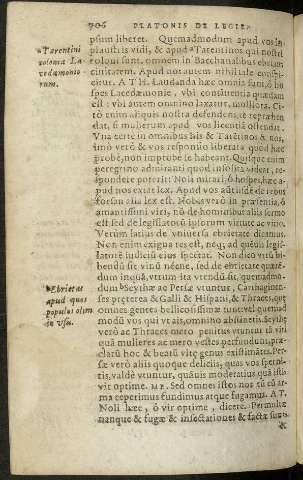 906 PLATONIS DE LEGIB.
psum liberet. Quemadmodum apud vos in
plaustris vidi, & apud a Tarentinos qui nostri
coloni sunt, omnem in Bacchanalibus ebriam
civitatem. Apud nos autem nihil tale conspi-
citur. A T H. Laudanda hæc omnia sunt, ô ho-
spes Lacedæmonie, vbi continentia quædam
est: vbi autem omnino laxatur, molliora. Ci-
tò enim aliquis nostra defendens, te reprehen-
dat, si mulierum apud vos licentiã ostendat.
Vna certè in omnibus his & Tarētinis & nos,
imò verò & vos responsio liberat, quod hæc
probè, non improbè se habeant. Quisque enim
peregrino admiranti quod insolita videat, re-
spondere poterit: Noli mirari, ô hospes, hæc a-
pud nos extat lex. Apud vos autē fortè de rebus
forsan alia lex est. Nobis verò in præsentia, ô
amantissimi viri, nō de hominibus aliis sermo
est, sed de legislatorũ ipsorum virtute ac vitio.
Verùm latius de vniuersa ebrietate dicamus.
Non enim exigua res est, neq; ad
iudicium eius spectat. Non dico vtrũ bi-
bendũ sit vinũ necne, sed de ebrietate quæ-
dam inquã, vtrum ita vtendũ sit, quemadmo-
dum b Scythæ ac Persæ vtuntur, Carthaginen-
ses præterea & Galli & Hispani, & Thraces, quæ
omnes gentes bellicosissimæ sunt: vel quemad
modũ vos qui vt ais, omnino abstinetis. Scythæ
verò ac Thraces mero penitus vtuntur tã viri
quã mulieres ac mero vestes perfundunt, præ-
clarũ hoc & beatũ vitę genus existimātes. Per-
sæ verò aliis quoque deliciis, quas vos spernitis,
valdè vtuntur, quãuis moderatiùs quã isti,
vir optime. M E. Sed omnes istos nos cũ ar-
ma ceperimus fundimus atque fugamus. A T.
Noli hæc, ô vir optime, dicere. Permultæ
nanque & fugæ & insectationes & factæ sunt
&
a Tarentini
colonia La-
cedæmonio-
rum.
b Ebrietas
apud quos
populos olim
in vsu.